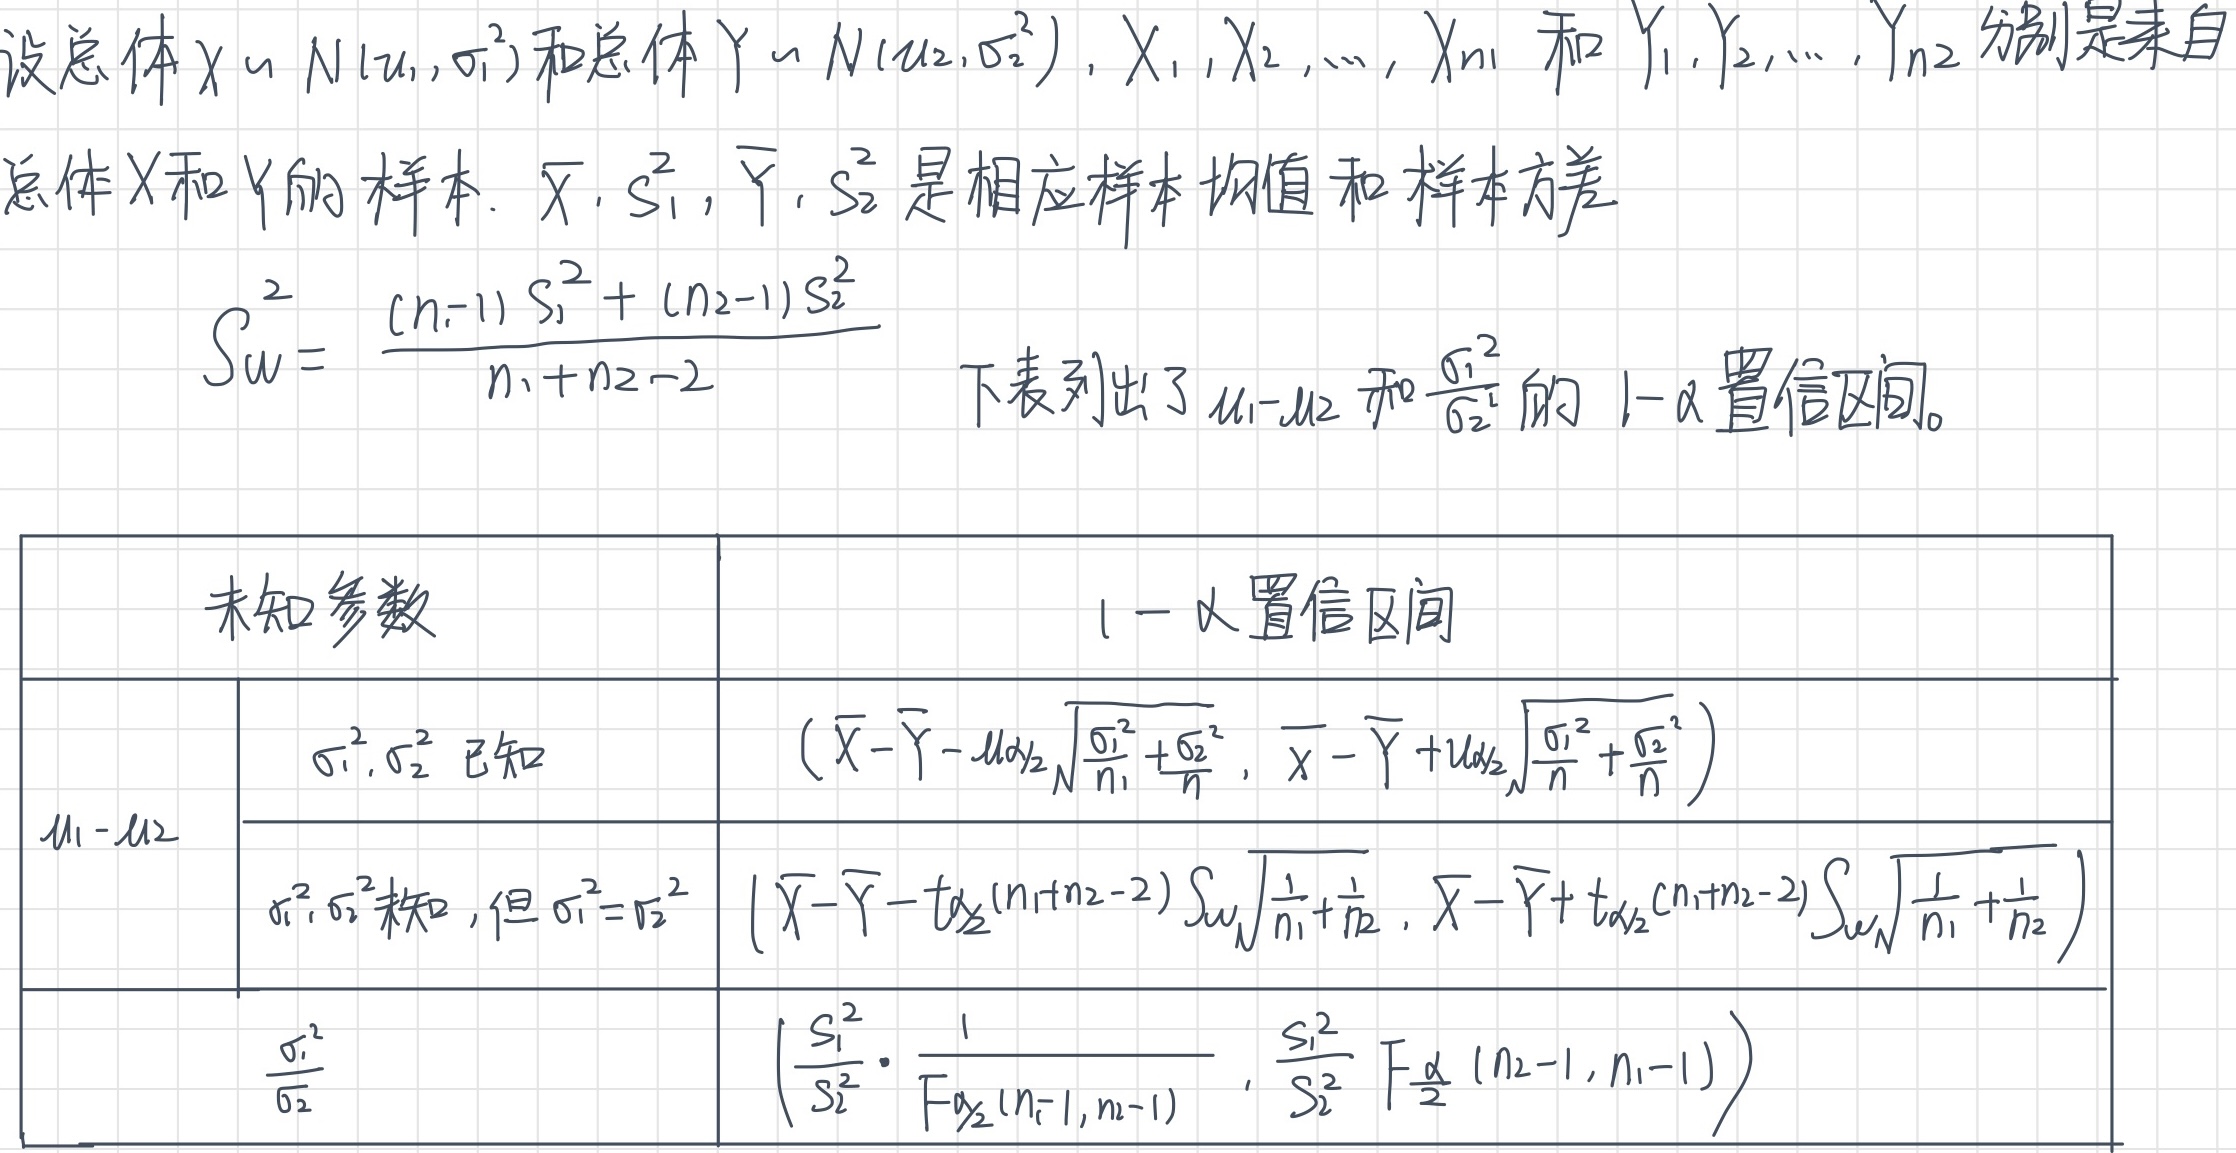 设总体X~N(u₁,σ₁²)和总体Y~N(u₂,σ₂²),X₁,X₂,…,Xn₁ 和 Y₁,Y₂,…,Yn₂ 分别是来自
总体X和Y的样本. X̄,S₁²,Ȳ,S₂²是相应样本均值和样本方差
Sw² = ((n₁-1)S₁²+(n₂-1)S₂²)/(n₁+n₂-2) 下表列出了μ₁-μ₂和σ₁²/σ₂²的 1-α置信区间。
未知参数 1-α置信区间
σ₁²,σ₂² 已知 (X̄-Ȳ-μα/2√(σ₁²/n₁+σ₂²/n), X̄-Ȳ+uα/2√(σ₁²/n+σ₂²/n))
μ₁-μ₂
σ₁²,σ₂²未知,但σ₁²=σ₂² (X̄-Ȳ-tα/2(n₁+n₂-2)Sw√(1/n₁+1/n₂), X̄-Ȳ+tα/2(n₁+n₂-2)Sw√(1/n₁+1/n₂))
σ₁²/σ₂ (S₁²/S₂²·1/Fα/2(n₁-1,n₂-1), S₁²/S₂² Fα/2(n₂-1,n₁-1))